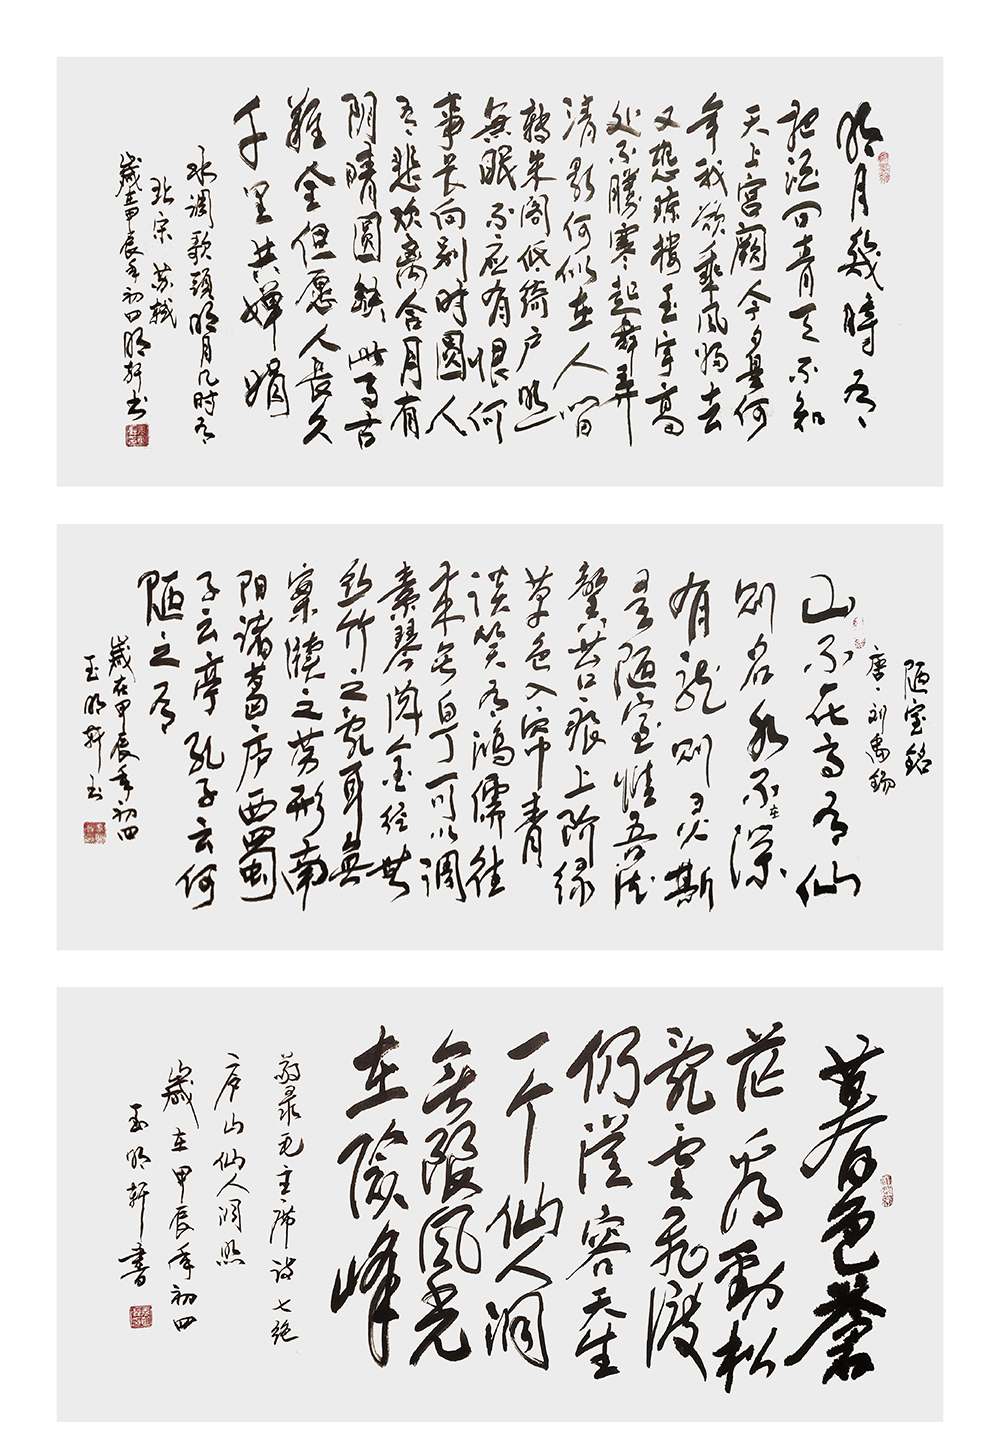 明月幾時有
把酒问青天不知
天上宫阙今夕是何
年我欲乘风归去
又恐琼楼玉宇高
处不勝寒起舞弄
清影何似在人间
轉朱阁低绮户照
無眠不应有恨何
事长向别时圆人
有悲欢离合月有
阴晴圆缺此事古
難全但愿人長久
千里共婵娟
水调歌頭明月几时有
北宋 苏轼
歲在甲辰年初四明轩书
陋室铭
唐、刘禹锡
山不在高有仙
则名水不在深
有龙则灵斯
是陋室惟吾德
馨苔痕上阶绿
草色入帘青
谈笑有鸿儒往
来无白丁可以调
素琴阅金经無
丝竹之乱耳無
案牍之劳形南
阳诸葛庐西蜀
子云亭孔子云何
陋之有
歲在甲辰年初四
玉明轩书
暮色蒼
茫看劲松
乱雲飛渡
仍從容天生
一个仙人洞
无限风光
在险峰
敬录毛主席诗七绝
庐山仙人洞照
歲在甲辰年初四
玉明轩書